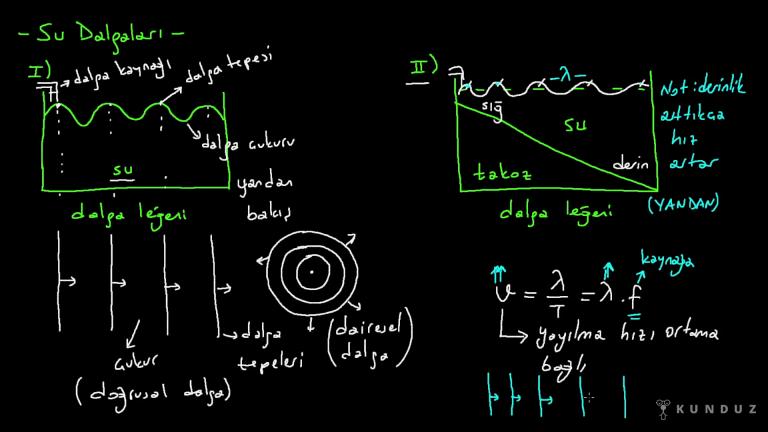 - Su Dalgaları -
I)
dalga kaynağı
dalga tepesi
dalga çukuru
su
yandan
bakış
dalga leğeni
çukur
(doğrusal dalga)
dalga
tepeleri
(dairesel
dalga)
II)
- λ -
sığ
su
derin
takoz
dalga leğeni
(YANDAN)
Not: derinlik
arttıkça
hız
artar
kaynağa
v = λ/T = λ . f
yayılma hızı ortama
bağlı
KUNDUZ